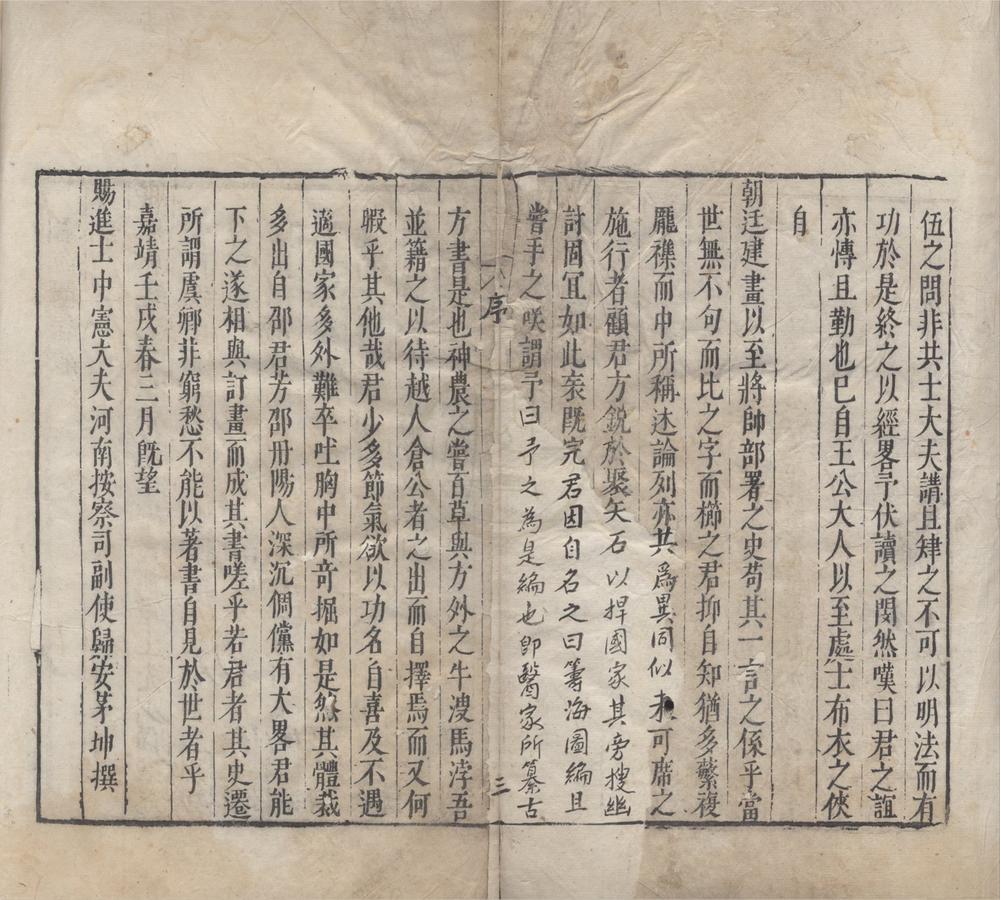 伍之問非共士大夫講且肄之不可以明法而有
功於是終之以經畧予伏讀之閔然嘆曰君之誼
亦慱且勤也已自王公大人以至處士布衣之俠
自
朝廷建畫以至將帥部署之史苟其一言之係乎當
世無不句而比之字而櫛之君抑自知猶多蘩複
厖襍而中所稱述論列亦共爲異同似未可席之
施行者顧君方銳於聚矢石以捍國家其旁搜幽
討固冝如此袠旣完君因自名之曰籌海圖編且
嘗手之咲謂予曰予之為是編也卽醫家所纂古
序
三
方書是也神農之嘗百草與方外之牛溲馬浡吾
並籍之以待越人倉公者之出而自擇焉而又何
暇乎其他哉君少多節氣欲以功名自喜及不遇
適國家多外難卒吐胸中所竒掘如是然其體裁
多出自邵君芳邵丹陽人深沉倜儻有大畧君能
下之遂相與訂畫而成其書嗟乎若君者其史遷
所謂虞卿非窮愁不能以著書自見於世者乎
嘉靖壬戌春三月旣望
賜進士中憲大夫河南按察司副使歸安茅坤撰